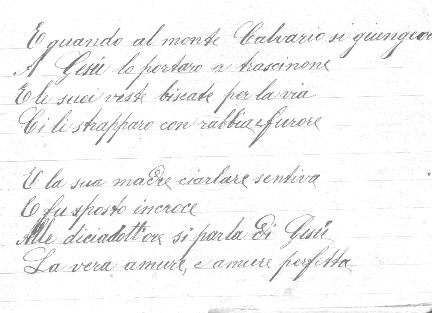 E quando al monte Calvario si giungeva
A Gesù lo portaro a trascinone
E le suoi veste biscate per la via
Ci li strapparo con rabbia e furore

E la sua madre ciarlare sentiva
E fu sposto in croce
Alle diciadott'ore si parla di Gesù
La vera amure, e amure perfetta